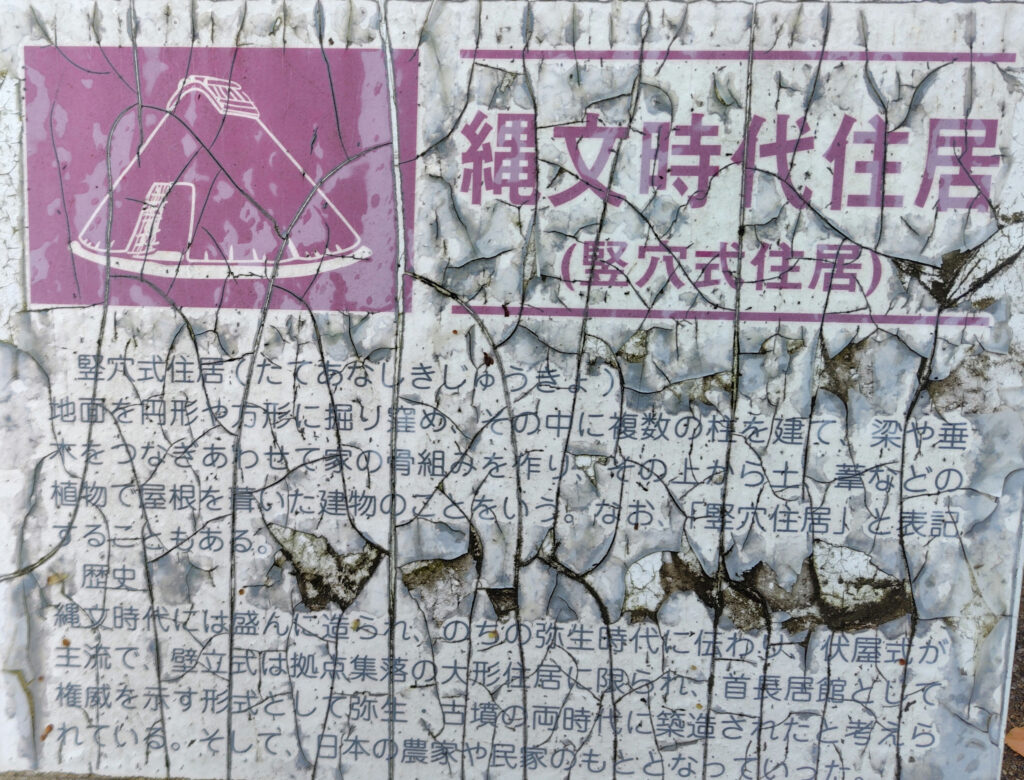 縄文時代住居
(竪穴式住居)
竪穴式住居(たてあなしきじゅうきょ)
地面を円形や方形に掘り窪め、その中に複数の柱を建て、梁や垂
木をつなぎあわせて家の骨組みを作り、その上から土、葦などの
植物で屋根を葺いた建物のことをいう。なお、「竪穴住居」と表記
することもある。
歴史
縄文時代には盛んに造られ、のちの弥生時代に伝わり、伏屋式が
主流で、壁立式は拠点集落の大形住居に限られ、首長居館として
権威を示す形式として弥生・古墳の両時代に築造されたと考えら
れている。そして、日本の農家や民家のもととなっていった